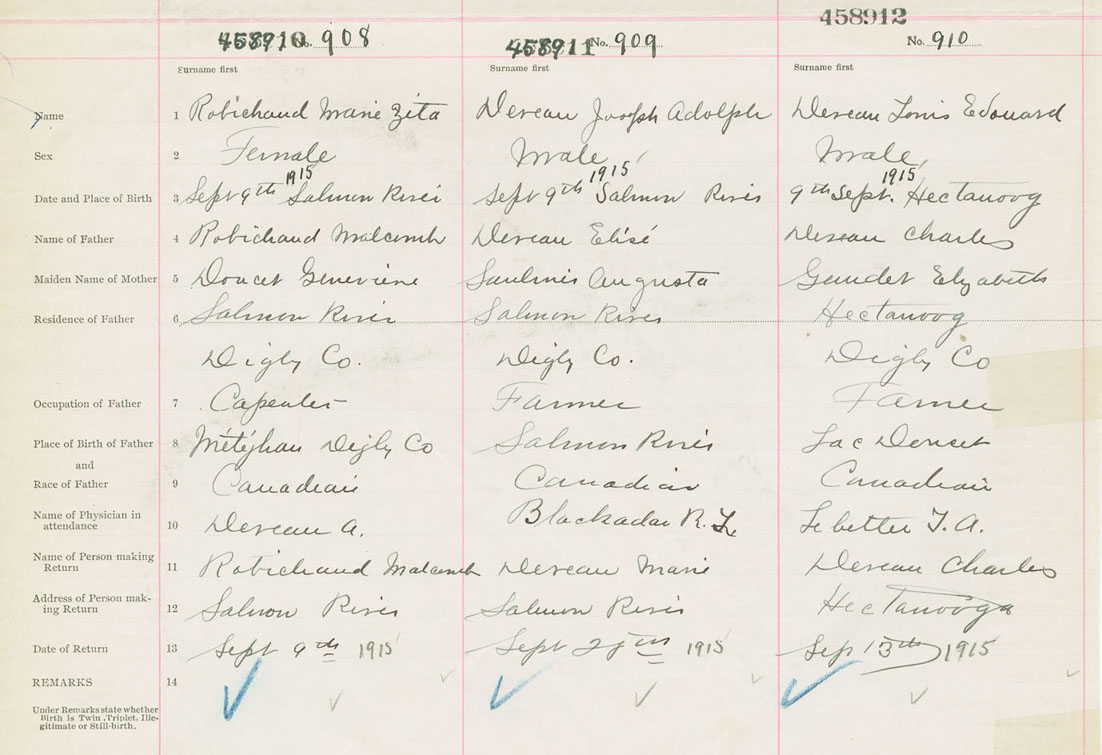 458910 No. 908 458911 No. 909 458912 No. 910
Surname first Surname first Surname first
Name 1 Robichaud Marie Zita Deveau Joseph Adolph Deveau Louis Edouard
Sex 2 Female Male Male
1915 1915 1915
Date and Place of Birth 3 Sept 9th Salmon River Sept 9th Salmon River 9th Sept. Hectanoog
Name of Father 4 Robichaud Malcomb Deveau Elisé Deveau Charles
Maiden Name of Mother 5 Doucet Genevieve Saulnis Augusta Gaudet Elizabeth
Residence of Father 6 Salmon River Salmon River Hectanoog
Digby Co. Digby Co. Digby Co
Occupation of Father 7 Capenter Farmer Farmer
Place of Birth of Father 8 Météghan Digby Co Salmon River Lac Doucet
and
Race of Father 9 Canadian Canadian Canadian
Name of Physician in
attendance 10 Deveau A. Blackadar R. L. Lebetter T. A.
Name of Person making
Return 11 Robichaud Malcomb Deveau Marie Deveau Charles
Address of Person mak-
ing Return 12 Salmon River Salmon River Hectanooga
Date of Return 13 Sept 9th 1915 Sept 1915 Sep 13th 1915
REMARKS 14
Under Remarks state whether
Birth is Twin, Triplet, Ille-
gitimate or Still-birth.